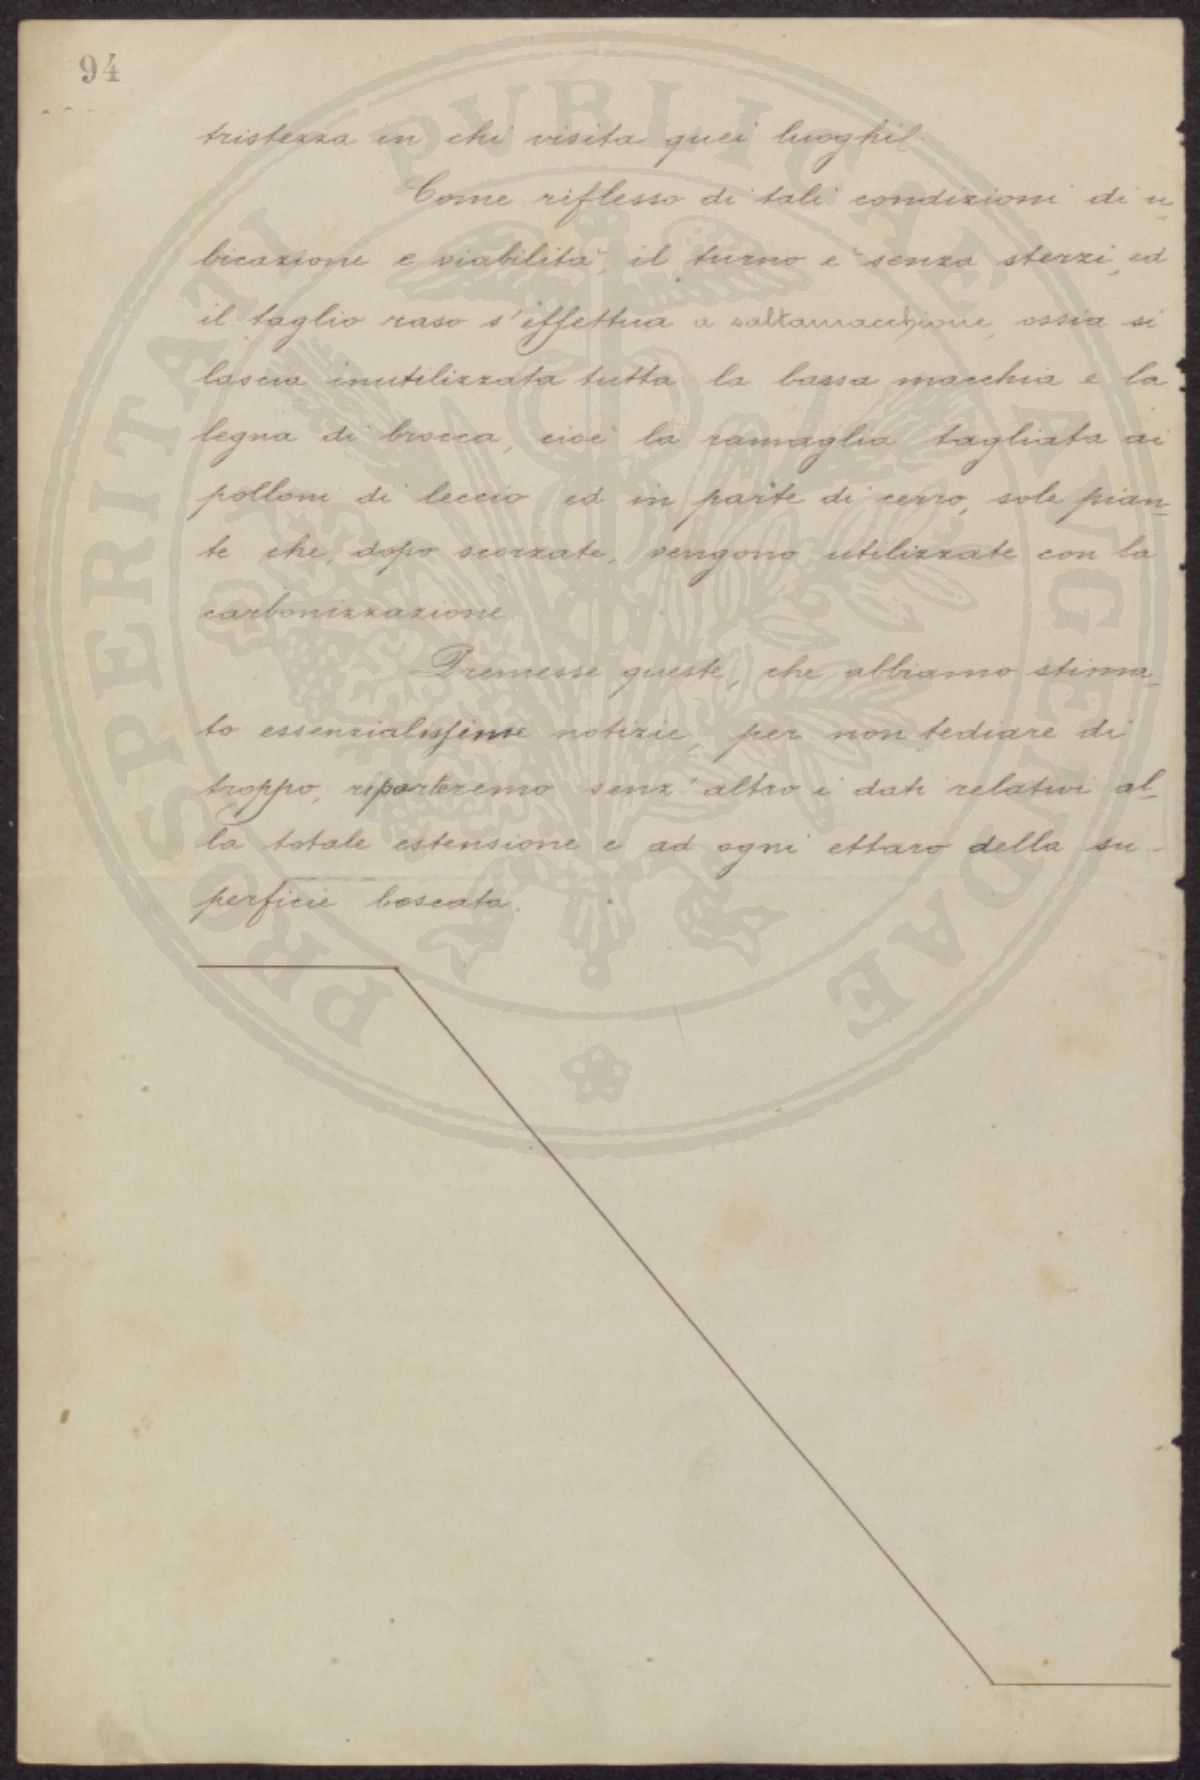 94
tristezza in chi visita quei luoghi!
Come riflesso di tali condizioni di u-
bicazione e viabilità, il turno è senza sterzi, ed
il taglio raso s'effettua a saltamacchione, ossia si
lascia inutilizzata tutta la bassa macchia e la
legna di brocca, cioè la ramaglia tagliata ai
polloni di leccio ed in parte di cerro, sole pian-
te che, dopo scorzate, vengono utilizzate con la
carbonizzazione.
Premesse queste, che abbiamo stima-
to essenzialissime notizie, per non tediare di
troppo, riporteremo senz'altro i dati relativi al-
la totale estensione e ad ogni ettaro della su-
perficie boscata.
PVBLICAE AVGENDAE PROSPERITATI